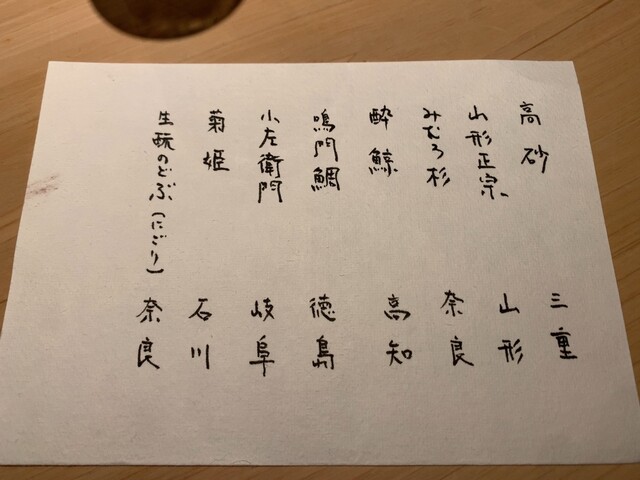 高砂 三重
山形正宗 山形
みむろ杉 奈良
酔鯨 高知
鳴門鯛 徳島
小左衛門 岐阜
菊姫 石川
生酛のどぶ(にごり) 奈良